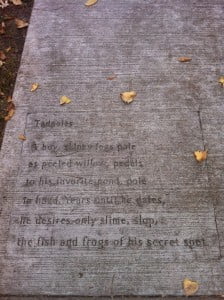 Tadpoles
A boy, skinny legs pale
as peeled willow, pedals
to his favorite pond, pole
in hand. Years until he dates,
he desires only slime, slap,
the fish and frogs of his secret spot.